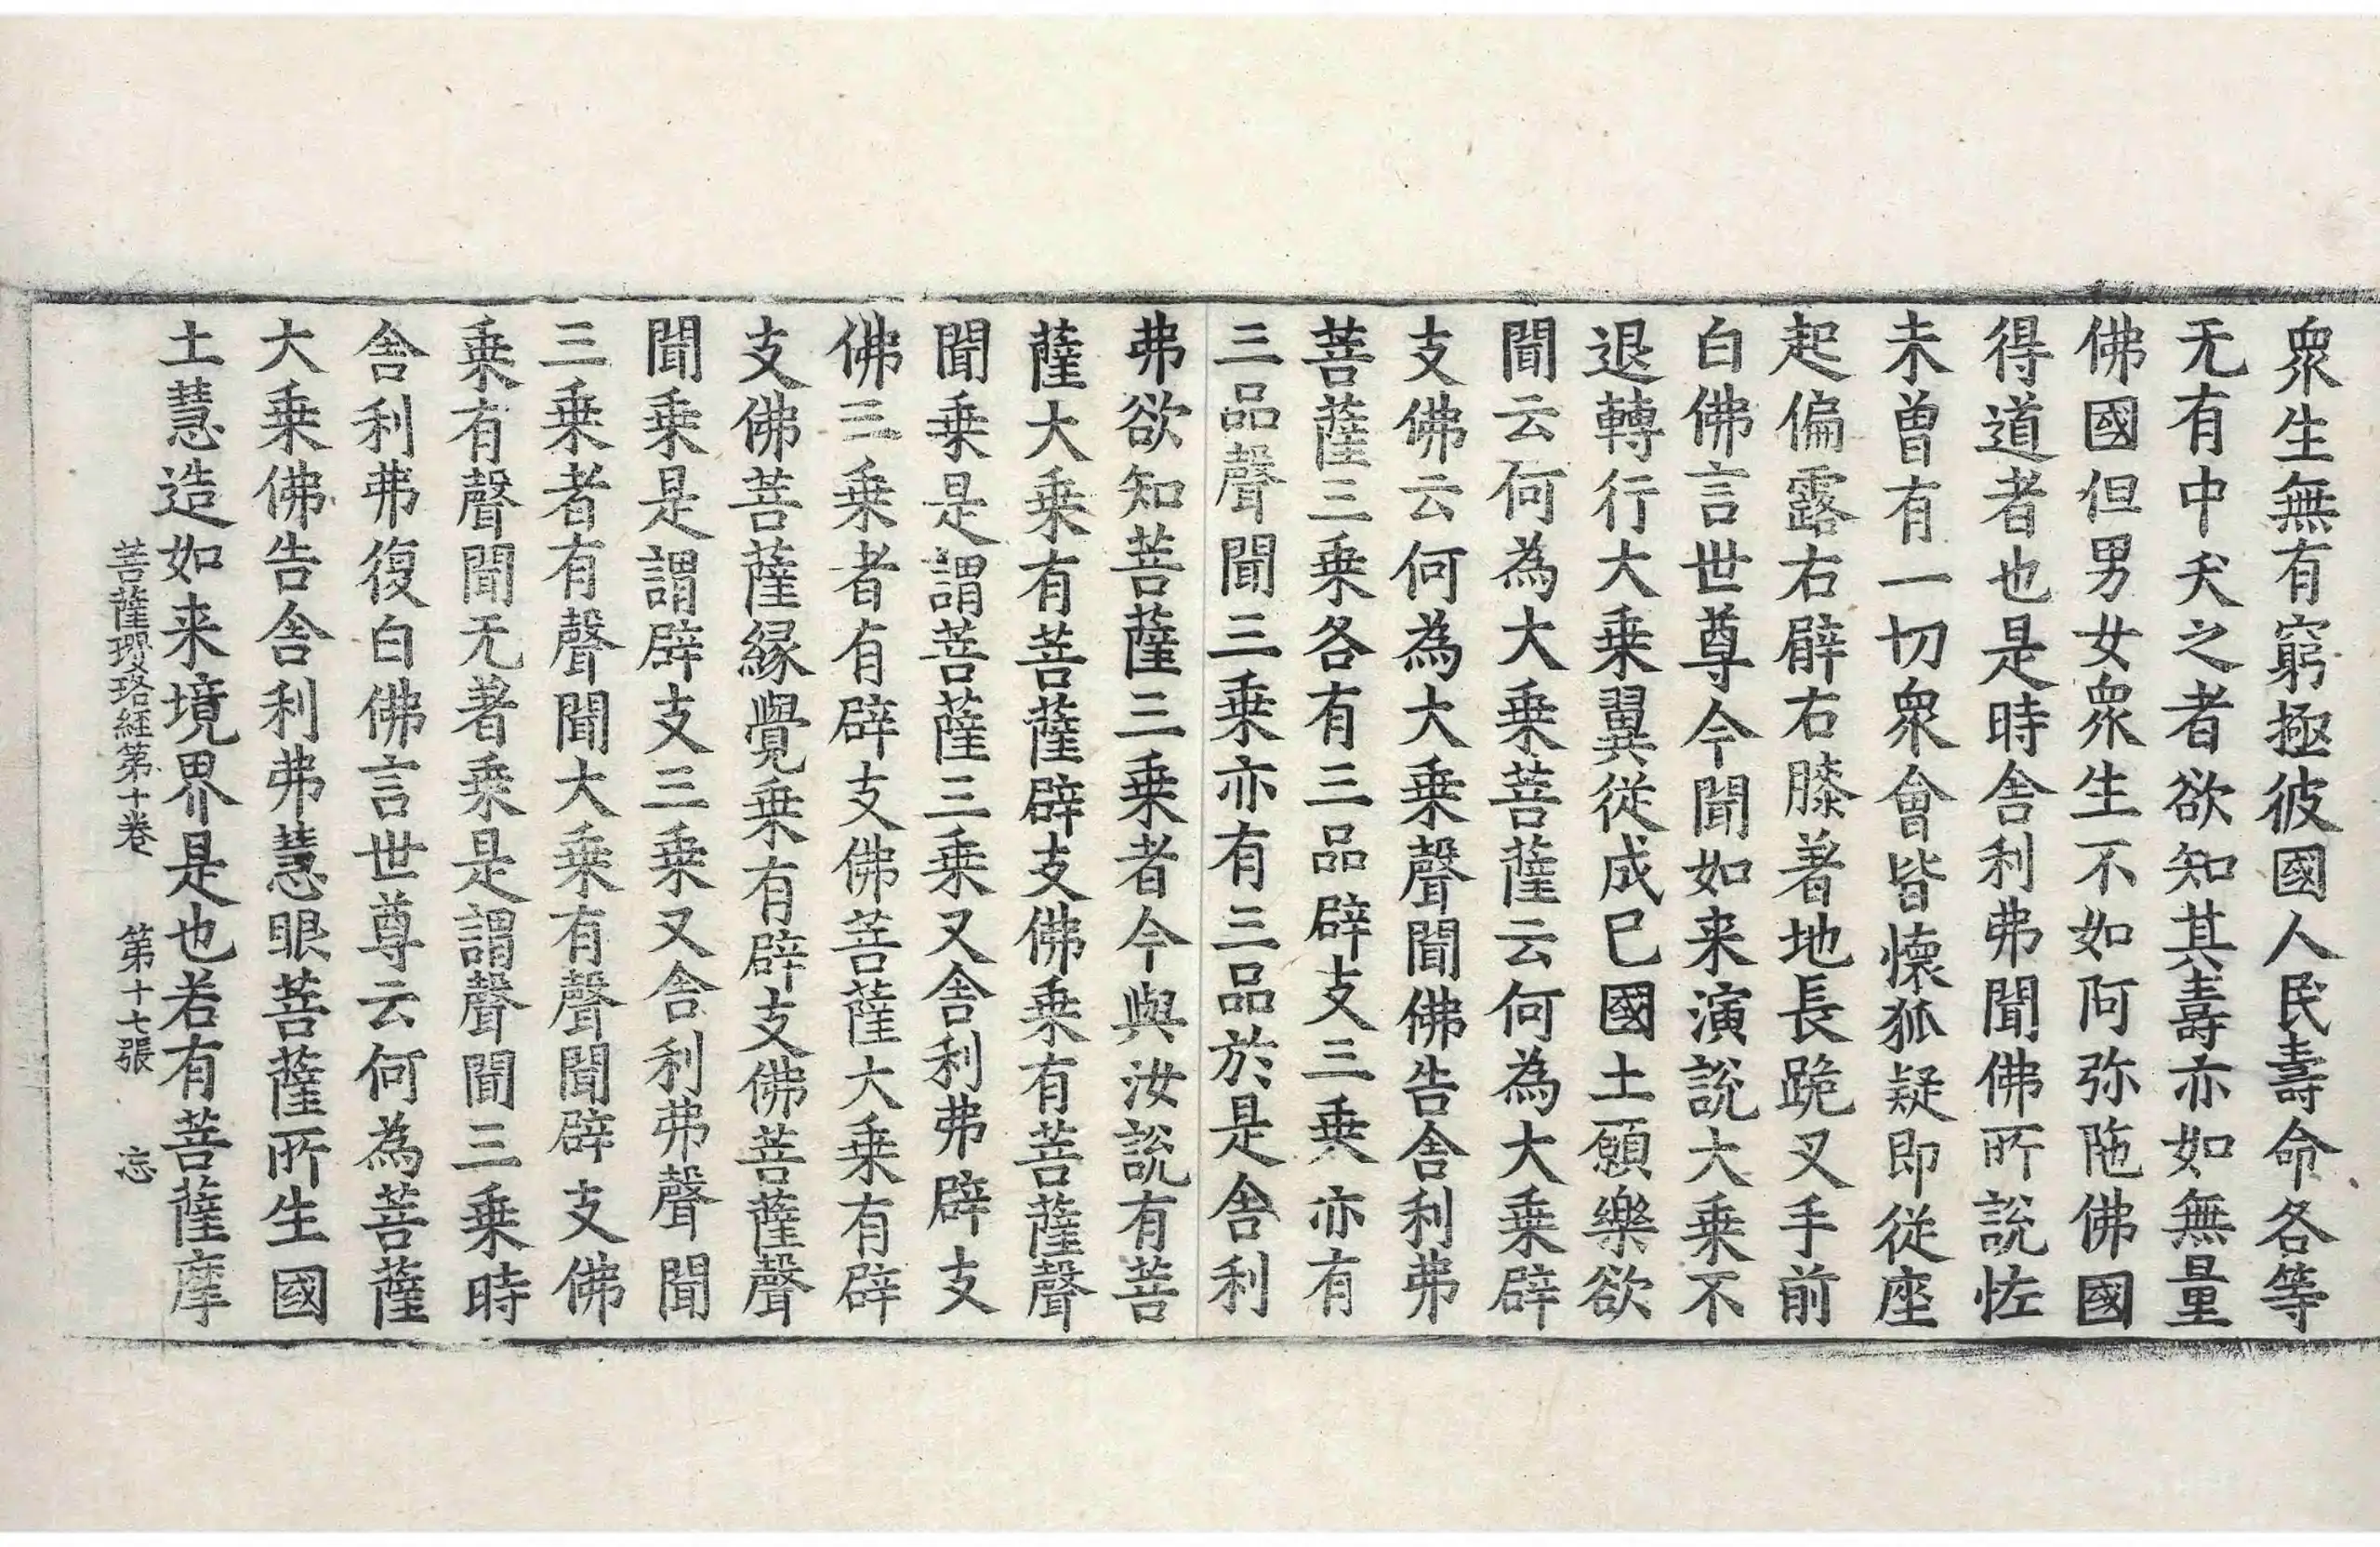 眾生無有窮極彼國人民壽命各等
无有中夭之者欲知其壽亦如無量
佛國但男女眾生不如阿弥陁佛國
得道者也是時舎利弗聞佛所說恠
未曾有一切眾會皆懷狐疑即從座
起偏露右臂右膝著地長跪叉手前
白佛言世尊今聞如来演說大乘不
退轉行大乘翼從成已國土願樂欲
聞云何為大乘菩薩云何為大乘辟
支佛云何為大乘聲聞佛告舎利弗
菩薩三乘各有三品辟支三乗亦有
三品聲聞三乘亦有三品於是舎利
弗欲知菩薩三乘者今與汝說有菩
薩大乘有菩薩辟支佛乘有菩薩聲
聞乘是謂菩薩三乘又舎利弗辟支
佛三乘者有辟支佛菩薩大乘有辟
支佛菩薩緣覺乘有辟支佛菩薩聲
聞乘是謂辟支三乘又舎利弗聲聞
三乘者有聲聞大乘有聲聞辟支佛
乘有聲聞无著乘是謂聲聞三乘時
舎利弗復白佛言世尊云何為菩薩
大乘佛告舎利弗慧眼菩薩所生國
土慧造如来境界是也若有菩薩摩
菩薩瓔珞經第十卷 第十七張 忘